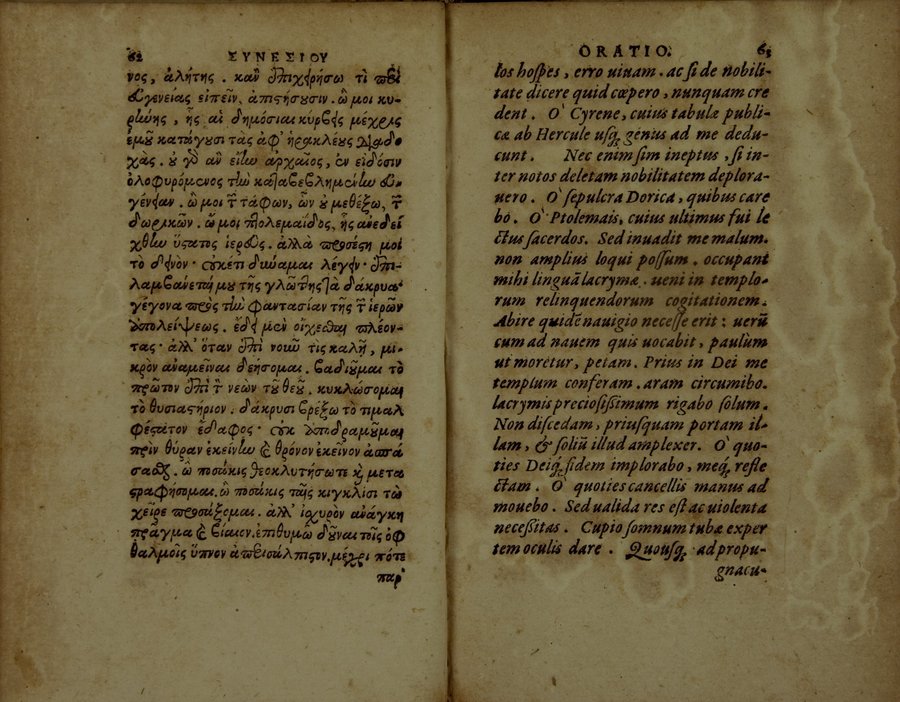 62 ΣΥΝΕΣΙΟΥ
νος, ἀλήτης. κἂν ἐπιχειρήσω τὶ περὶ
εὐγενείας εἰπεῖν, ἀπιστήσουσιν. ὤ μοι κυ-
ρήνης, ἧς αἱ δημόσιαι κύρβεις μέχρις
ἐμοῦ κατάγουσι τὰς ἀφ' ἡρακλέους διαδο-
χάς. οὐ γὸ ἂν εἴην ἀρχαῖος, ἐν εἰδόσιν
ὀλοφυρόμενος τὴν καταβεβλημένην εὐ-
γένειαν. ὤ μοι τῶν τάφων, ὧν οὐ μεθέξω, τῶν
δωρικῶν. ὤ μοι πτολεμαΐδος, ἧς ἀνεδεί
χθην ὕστατος ἱερεύς. ἀλλὰ πρόσεστι μοι
τὸ δεινόν. οὐκέτι δύναμαι λέγειν. ἐπι-
λαμβάνεταί μου τῆς γλώττης τὰ δάκρυα.
γέγονα πρὸς τὴν φαντασίαν τῆς τῶν ἱερῶν
ἀπολείψεως. ἔδει μὲν οἴχεσθαι πλέον-
τας. ἀλλ' ὅταν ἐπὶ νοῦν τις καλῇ, μι-
κρὸν ἀναμεῖναι δεήσομαι. βαδιοῦμαι τὸ
πρῶτον ἐπὶ τὸν νεὼν τοῦ θεοῦ, κυκλώσομαι
τὸ θυσιαστήριον. δάκρυσι βρέξω τὸ τιμαλ
φέστατον ἔδαφος. οὐκ ἀποδραμοῦμαι
πρὶν θύραν ἐκείνην καὶ θρόνον ἐκεῖνον ἀσπά
σασθαι. ὢ ποσάκις θεοκλυτήσω τε καὶ μετα
στραφήσομαι. ὢ ποσάκις ταῖς κιγκλίσι τὼ
χεῖρε προσάξομαι. ἀλλ' ἰσχυρὸν ἀνάγκη
πρᾶγμα καὶ βίαιον. ἐπιθυμῶ δοῦναι τοῖς ὀφ
θαλμοῖς ὕπνον ἀπερισάλπιστον. μέχρι πότε
παρ'
ORATIO. 63
los hospes, erro uiuam. ac si de nobili-
tate dicere quid cœpero, nunquam cre
dent. O' Cyrene, cuius tabulæ publi-
cæ ab Hercule usq; genius ad me dedu-
cunt. Nec enim sim ineptus, si in-
ter notos deletam nobilitatem deplora-
uero. O' sepulcra Dorica, quibus care
bo. O' Ptolemais, cuius ultimus fui le
ctus sacerdos. Sed inuadit me malum.
non amplius loqui possum. occupant
mihi linguã lacrymæ. ueni in templo-
rum relinquendorum cogitationem.
Abire quidẽ nauigio necesse erit: uerũ
cum ad nauem quis uocabit, paulùm
ut moretur, petam. Prius in Dei me
templum conferam. aram circumibo.
lacrymis preciosissimum rigabo solum.
Non discedam, priusquam portam il-
lam, & soliũ illud amplexer. O' quo-
ties Deiq; fidem implorabo, meq; refle
ctam. O' quoties cancellis manus ad
mouebo. Sed ualida res est ac uiolenta
necessitas. Cupio somnum tubæ exper
tem oculis dare. Quousq; ad propu-
gnacu-